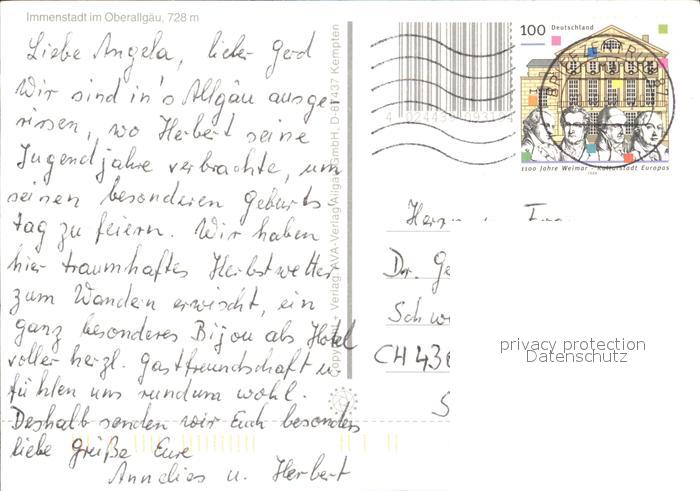 Immenstadt im Oberallgäu, 728 m
Liebe Angela, lieber Gerd
Wir sind in's Allgäu ausge-
rissen, wo Herbert seine
Jugendjahre verbrachte, um
seinen besonderen Geburts
tag zu feiern. Wir haben
hier traumhaftes Herbstwetter
zum Wandern erwischt, ein
ganz besonderes Bijou als Hotel
voller herzl. Gastfreundschaft u.
fühlen uns rundum wohl.
Deshalb senden wir Euch besonders
liebe Grüße Eure
Annelies u. Herbert
Verlag: AVA-Verlag Allgäu GmbH, D-87437 Kempten
100 Deutschland
1100 Jahre Weimar - Kulturstadt Europas
Dr. Ge
CH 436
privacy protection
Datenschutz